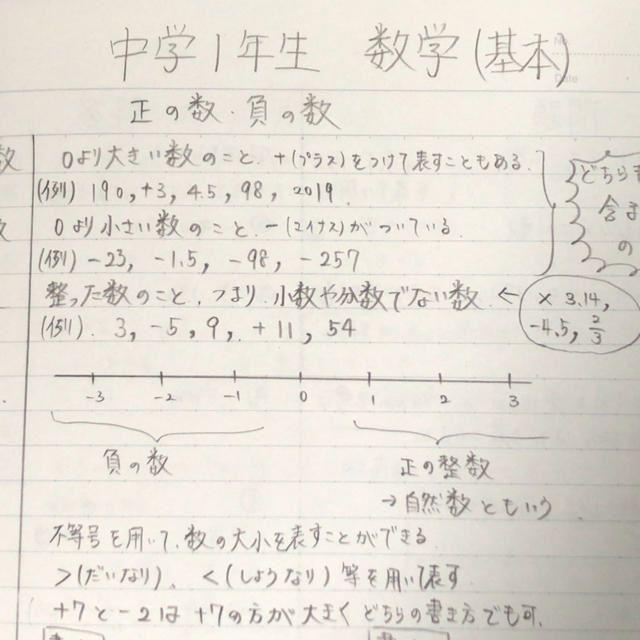 中学1年生 数学(基本)
No.
Date
正の数・負の数
数 0より大きい数のこと、+(プラス)をつけて表すこともある.
(例) 190, +3, 4.5, 98, 2019
数 0より小さい数のこと. -(マイナス)がついている.
(例) -23, -1.5, -98, -257
どちらも
含ま
の
整った数のこと、つまり、小数や分数でない数 ← × 3.14,
-4.5, 2/3
(例). 3, -5, 9, +11, 54
-3 -2 -1 0 1 2 3
負の数 正の整数
→自然数ともいう
不等号を用いて、数の大小を表すことができる.
>(だいなり)、<(しょうなり)等を用いて表す
+7と-2は+7の方が大きく どちらの書き方でも可.